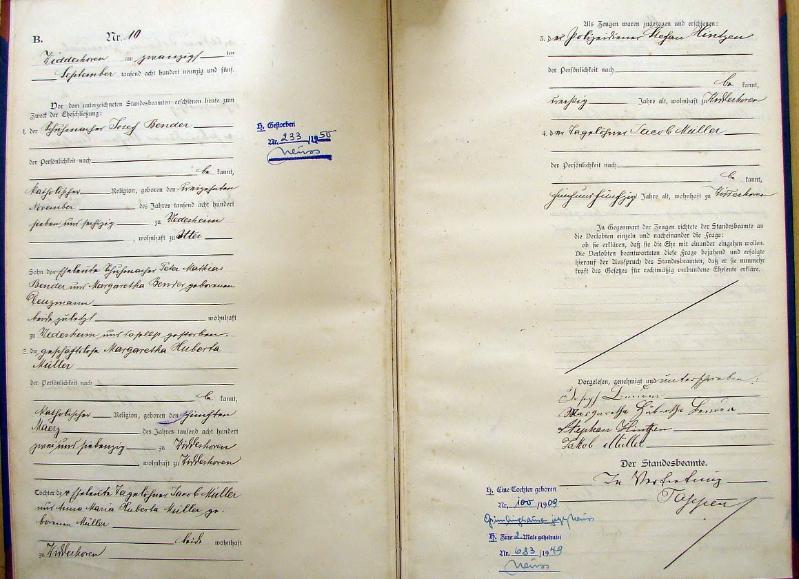 B. Nr. 10
am zwanzigsten
September tausend acht hundert neunzig und fünf.
Vor dem unterzeichneten Standesbeamten erschienen heute zum
Zweck der Eheschließung:
1. der Schuhmacher Josef Bender
der Persönlichkeit nach
be kannt,
katholischer Religion, geboren den dreizehnten
November des Jahres tausend acht hundert
sieben und sechzig zu Vedesheim
, wohnhaft zu
Sohn der Eheleute Schuhmacher Peter Mathias
Bender und Margaretha Bender geborenen
beide zuletzt wohnhaft
zu Vedesheim und daselbst gestorben.
2. die geschäftslose Margaretha Huberta
Müller
der Persönlichkeit nach
be kannt,
katholischer Religion, geboren den fünften
Maerz des Jahres tausend acht hundert
zwei und siebenzig zu
, wohnhaft zu
Tochter der Eheleute Tagelöhner Jacob Müller
und Anna Maria Huberta Müller ge-
borenen Müller
beide wohnhaft
zu
H. Gestorben
Nr. 233 /1950
Neuss
Als Zeugen waren zugezogen und erschienen:
3. der Polizeidiener Stefan Hintzen
der Persönlichkeit nach
be kannt,
Jahre alt, wohnhaft zu
4. der Tagelöhner Jacob Müller
der Persönlichkeit nach
be kannt,
fünfundfünfzig Jahre alt, wohnhaft zu
In Gegenwart der Zeugen richtete der Standesbeamte an
die Verlobten einzeln und nacheinander die Frage:
ob sie erklären, daß sie die Ehe mit einander eingehen wollen.
Die Verlobten beantworteten diese Frage bejahend und erfolgte
hierauf der Ausspruch des Standesbeamten, daß er sie nunmehr
kraft des Gesetzes für rechtmäßig verbundene Eheleute erkläre.
Vorgelesen, genehmigt und unterschrieben:
Josef Bender
Margaretha Huberta Bender
Stephan Hintzen
Jakob Müller
Der Standesbeamte.
In Vertretung
H. Eine Tochter geboren
Nr. 100 /1909
Neuss
H. Zum 2. Male geheiratet
Nr. 683 /1949
Neuss